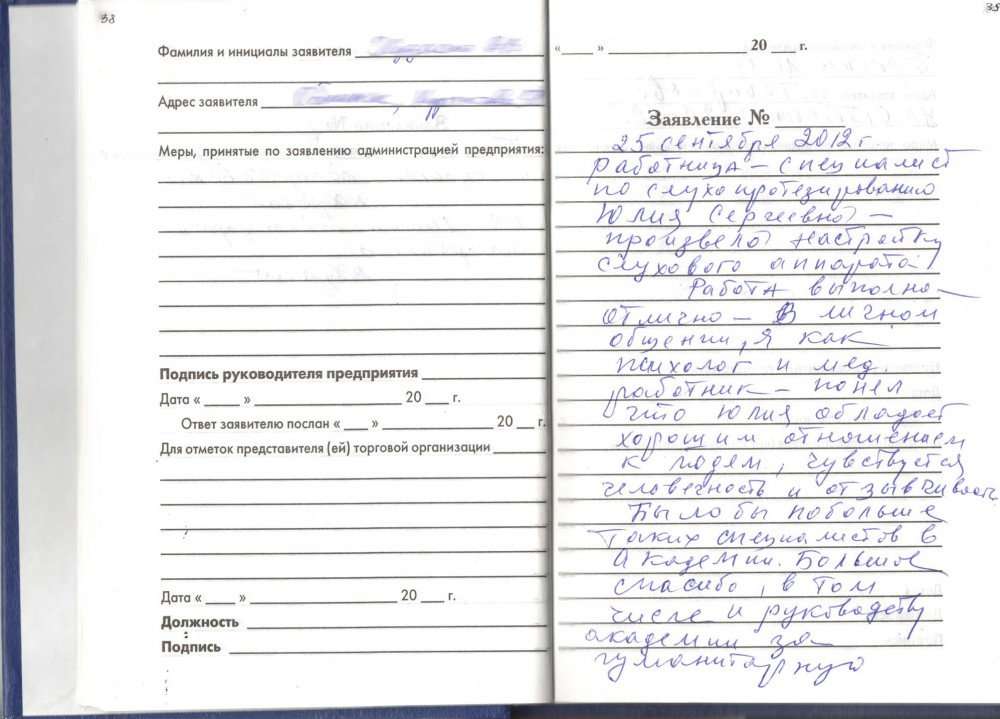 38
Фамилия и инициалы заявителя
Адрес заявителя
Меры, принятые по заявлению администрацией предприятия:
Подпись руководителя предприятия
Дата « ___ » ___ 20 ___ г.
Ответ заявителю послан « ___ » ___ 20 ___ г.
Для отметок представителя (ей) торговой организации
Дата « ___ » ___ 20 ___ г.
Должность
Подпись
35
« ___ » ___ 20 ___ г.
Заявление № ___
25 сентября 2012 г
Работница – специалист
по слухопротезированию
Юлия Сергеевна –
произвела настройку
слухового аппарата
Работа выполнена
отлично – В личном
общении, я как
психолог и мед.
работник – понял
что Юлия обладает
хорошим отношением
к людям, чувствуется
человечность и отзывчивость
Было бы побольше
таких специалистов в
Академии. Большое
спасибо, в том
числе и руководству
академии за
гуманитарную